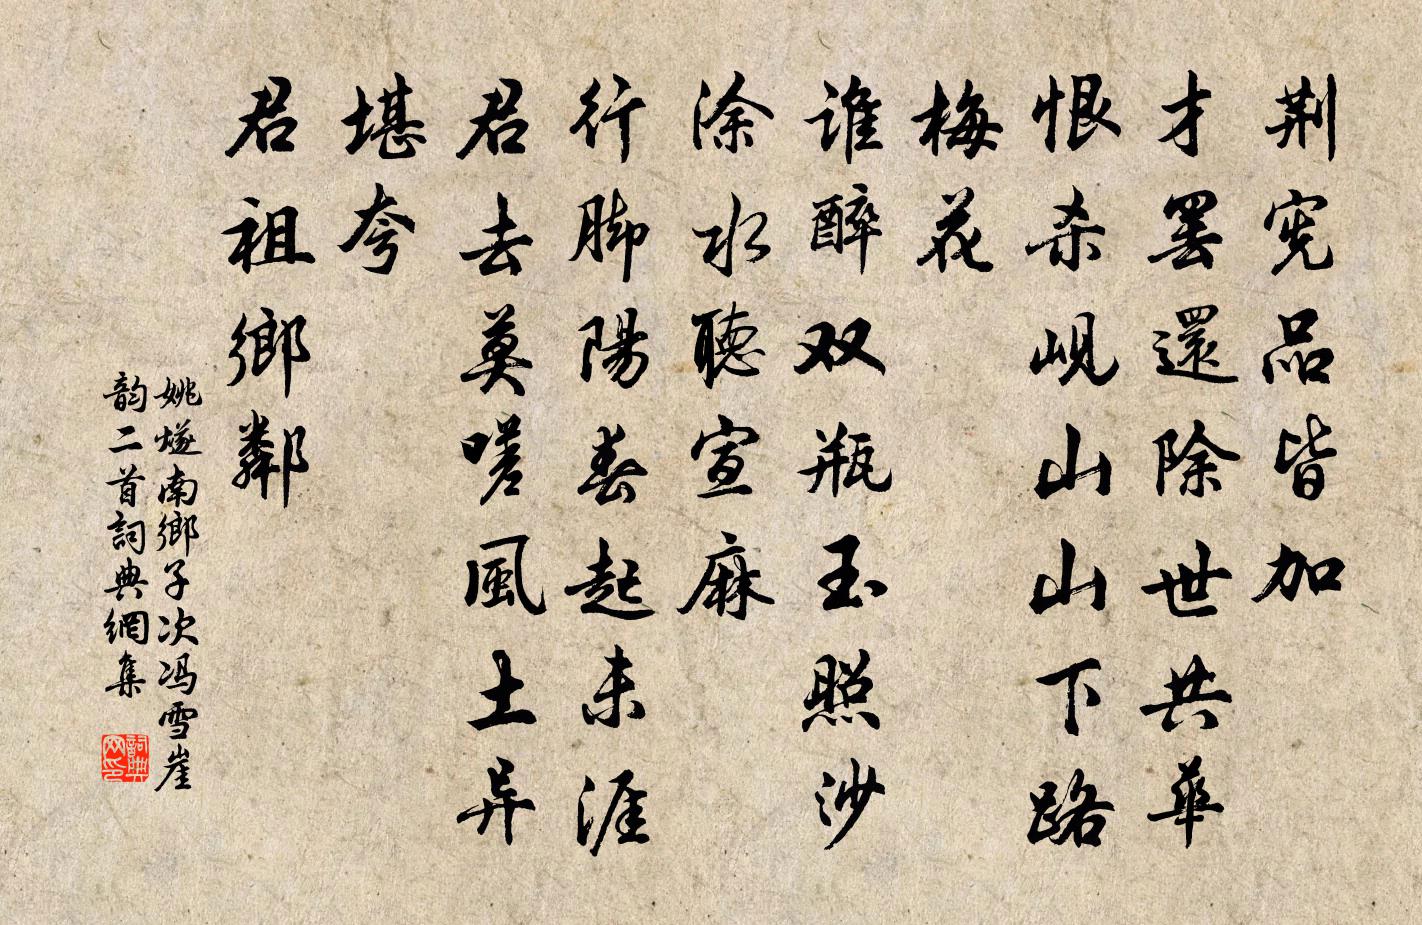 荆宪品皆加
才罢還除世共華
恨杀岘山山下路
梅花
谁醉双瓶玉照沙
涂水聽宣麻
行脚陽春起未涯
君去莫嗟風土异
堪夸
君祖鄉鄰
姚燧南鄉子次冯雪崖
韵二首詞典網集
詞典
网印